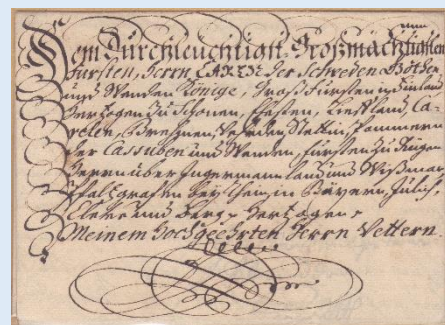 Dem Durchleuchtigst-Großmächtigsten
Fürsten, Herrn CARL der Schweden, Gothen
und Wenden Könige, Groß Fürsten in Finland
Hertzogen zu Schonen, Ehesten, Lieffland, Ca-
relen, Brehmen, Vehrden, Stettin, Pommern
der Cassuben und Wenden, Fürsten zu Rügen
Herrn über Ingermannland und Wißmar
Pfaltzgrafen bey Rhein, in Bäyern, Jülich,
Cleve und Berg, Hertzogen,
Meinem Hochgeehrten Herrn Vettern.